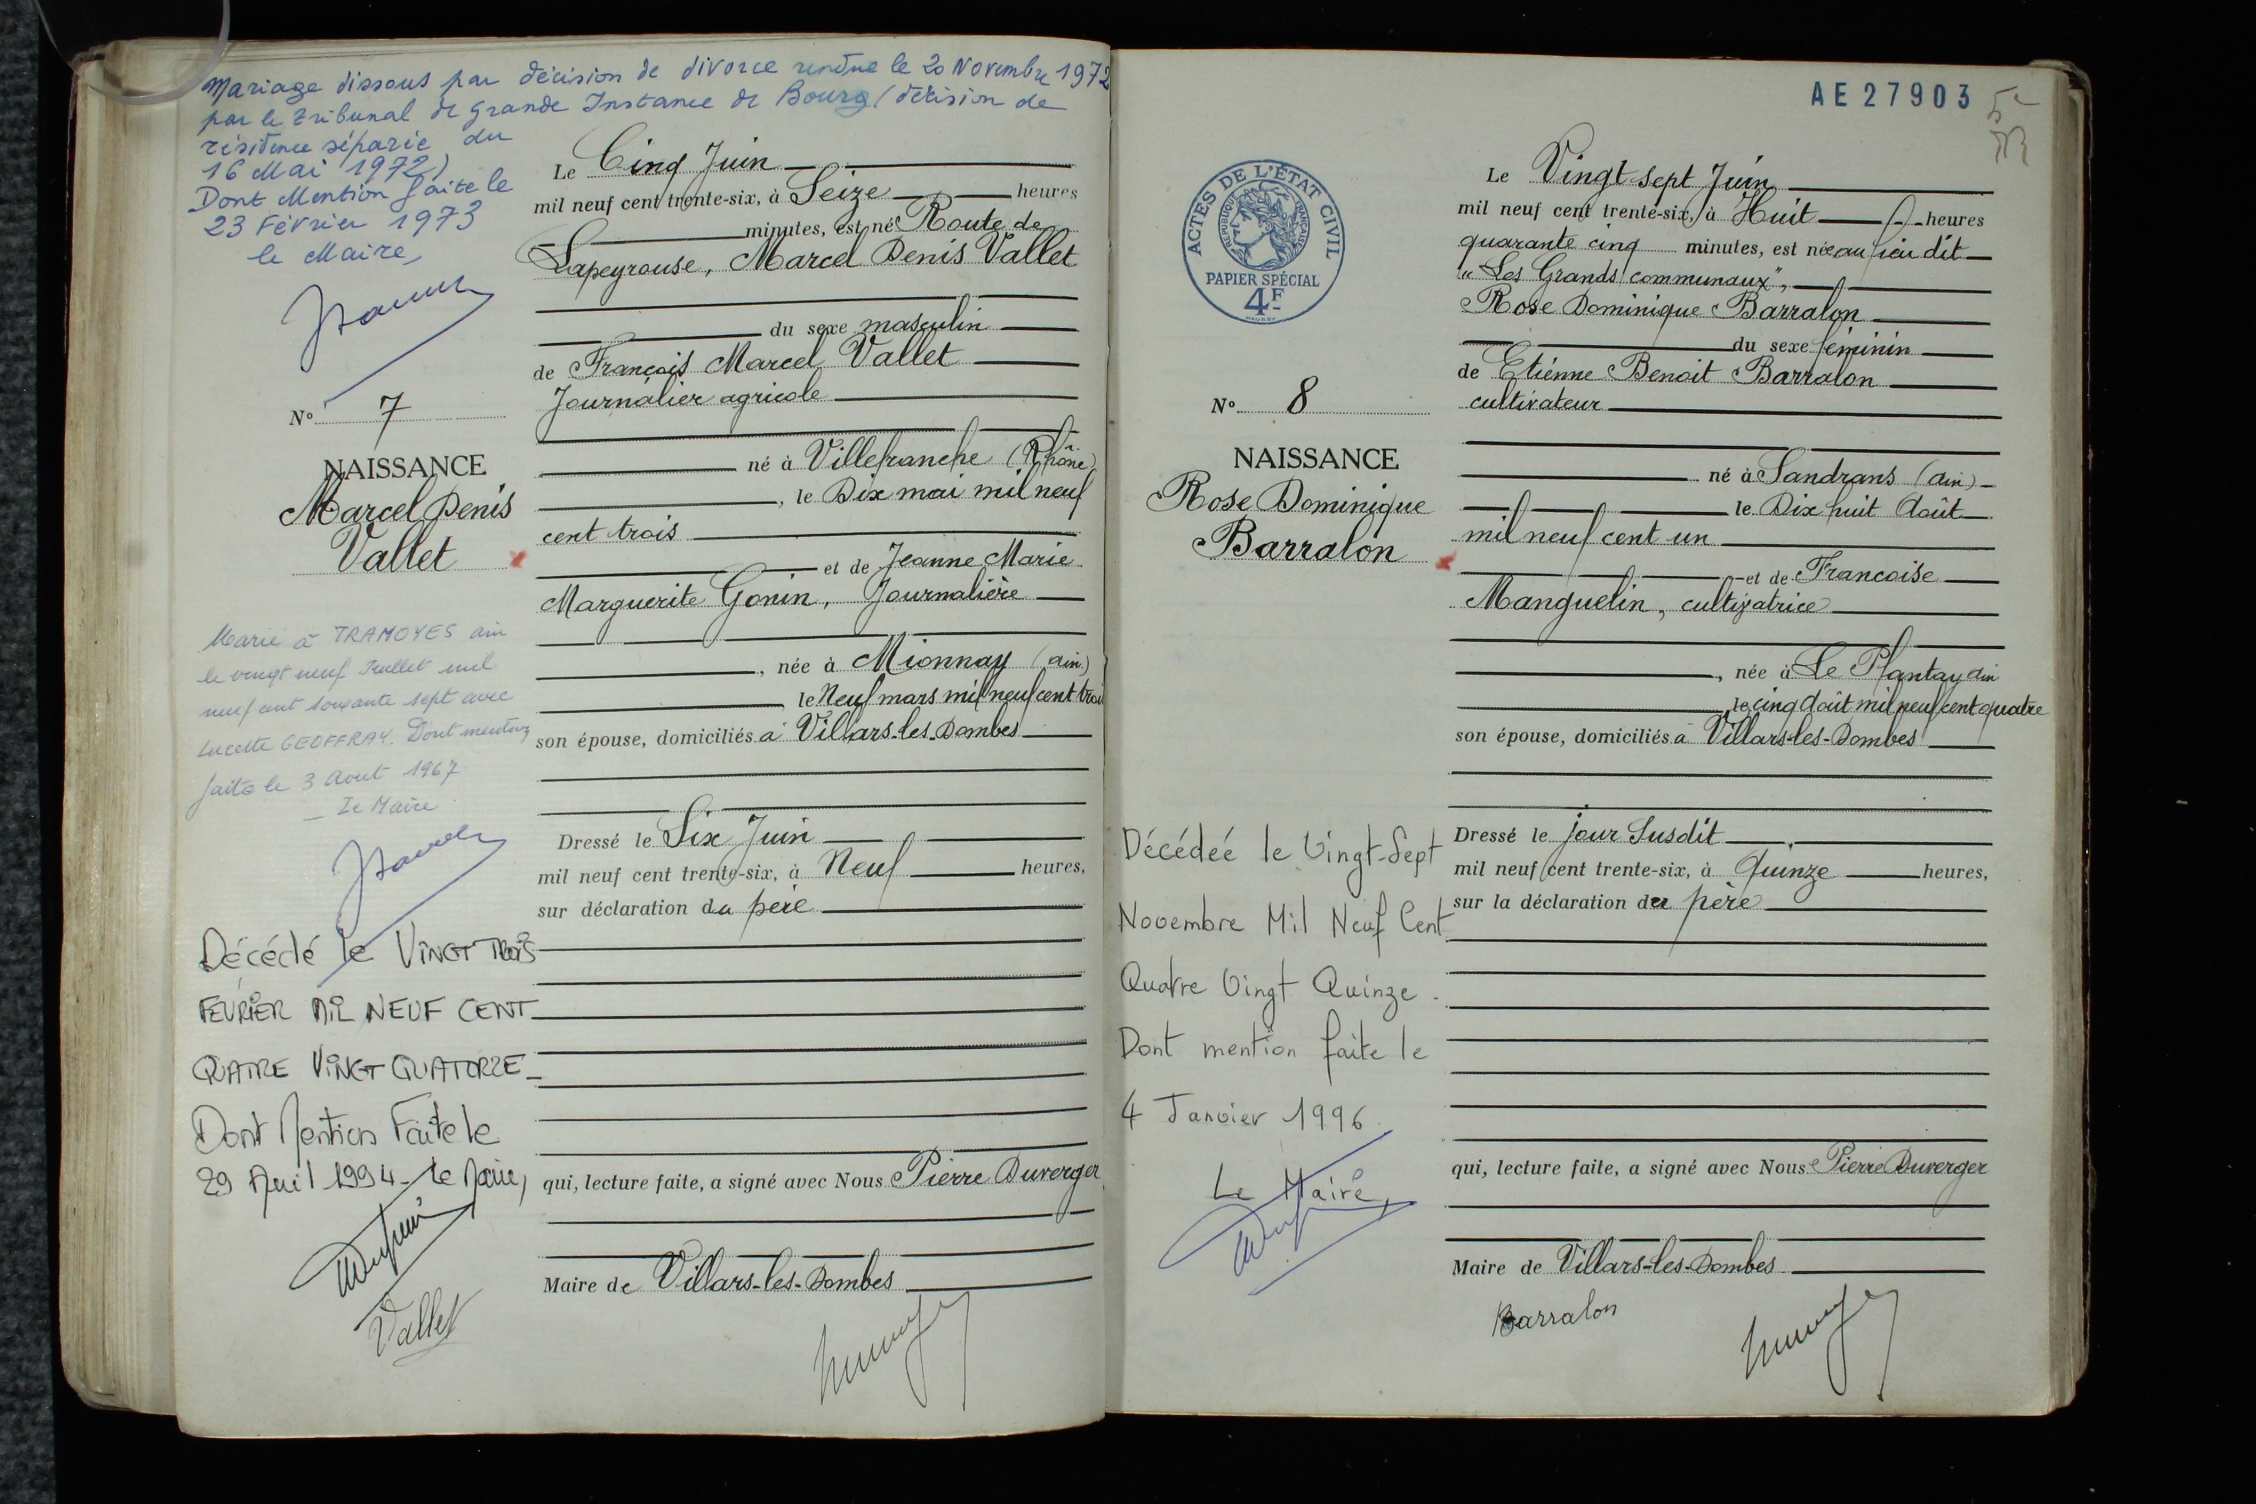 Mariage dissous par décision de divorce rendue le 20 Novembre 1972
par le tribunal de Grande Instance de Bourg (décision de
résidence séparée du
16 Mai 1972)
Dont Mention faite le
23 Février 1973
le Maire,
N° 7
NAISSANCE
Marcel Denis
Vallet
Marié à TRAMOYES ain
le vingt neuf Juillet mil
neuf cent soixante sept avec
Lucette GEOFFRAY. Dont mention
faite le 3 Aout 1967
Le Maire
Décédé le VINGT TROIS
FEVRIER MIL NEUF CENT
QUATRE VINGT QUATORZE
Dont Mention Faite le
29 Avril 1994 - le Maire,
Vallet
Le Cinq Juin
mil neuf cent trente-six, à Seize heures
minutes, est né Route de
Lapeyrouse, Marcel Denis Vallet
du sexe masculin
de François Marcel Vallet
Journalier agricole
né à Villefranche (Rhône)
, le Dix mai mil neuf
cent trois
et de Jeanne Marie
Marguerite Gonin, Journalière
, née à Mionnay (ain)
le Neuf mars mil neuf cent trois
son épouse, domiciliés à Villars-les-Dombes
Dressé le Six Juin
mil neuf cent trente-six, à Neuf heures,
sur déclaration du père
qui, lecture faite, a signé avec Nous Pierre Duverger
Maire de Villars-les-Dombes
AE27903
ACTES DE L'ÉTAT CIVIL
RÉPUBLIQUE FRANÇAISE
PAPIER SPÉCIAL
4F
N° 8
NAISSANCE
Rose Dominique
Barralon
Décédeé le Vingt-Sept
Novembre Mil Neuf Cent
Quatre Vingt Quinze.
Dont mention faite le
4 Janvier 1996.
Le Maire,
Le Vingt sept Juin
mil neuf cent trente-six, à Huit heures
quarante cinq minutes, est née au lieu dit
"Les Grands communaux",
Rose Dominique Barralon
du sexe féminin
de Etienne Benoit Barralon
cultivateur
né à Sandrans (ain)
le Dix huit Août
mil neuf cent un
et de Francoise
Manguelin, cultivatrice
, née à Le Plantay ain
, le cinq Août mil neuf cent quatre
son épouse, domiciliés à Villars-les-Dombes
Dressé le jour Susdit
mil neuf cent trente-six, à Quinze heures,
sur la déclaration du père
qui, lecture faite, a signé avec Nous Pierre Duverger
Maire de Villars-les-Dombes
Barralon